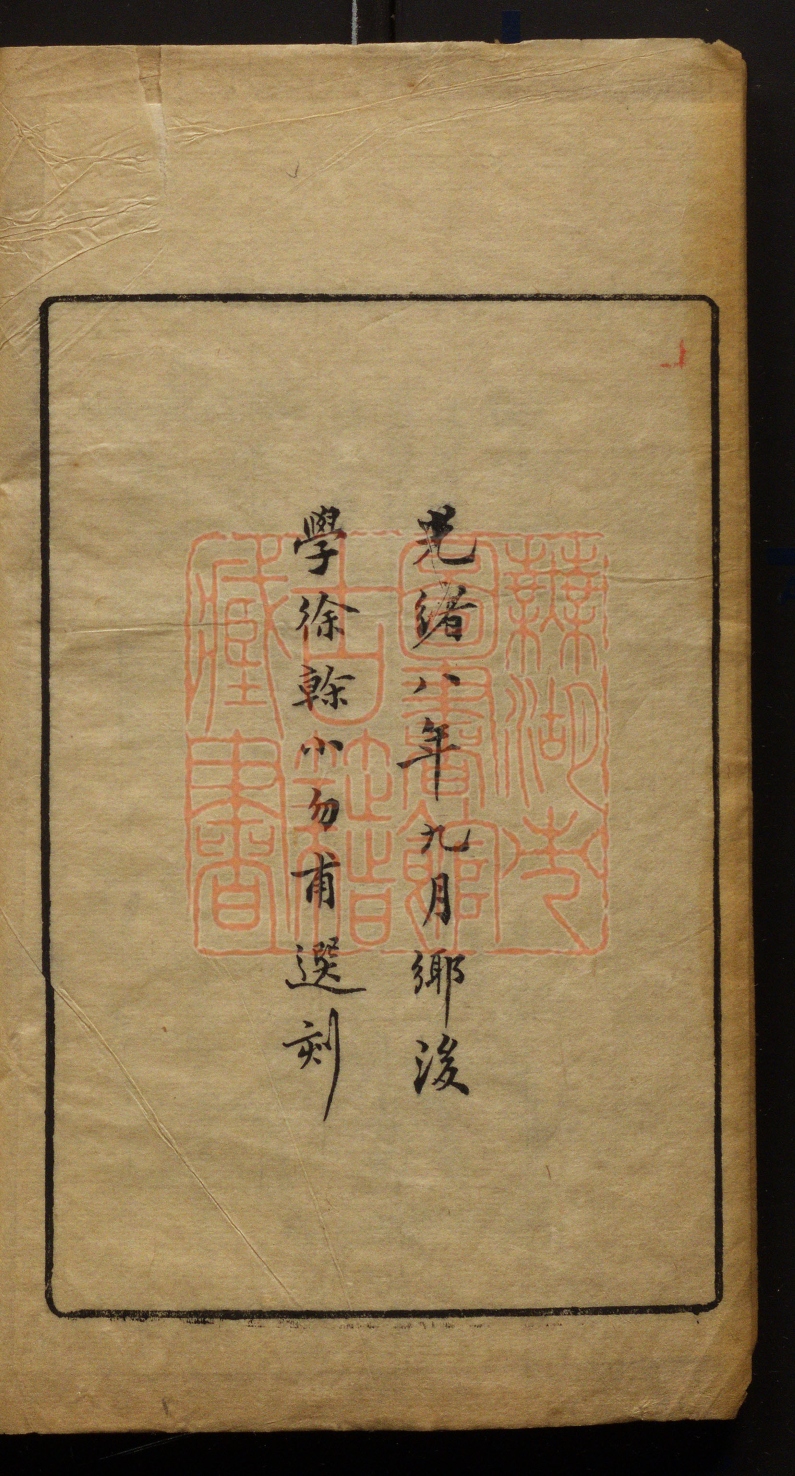 光緒八年九月鄉後
學徐榦小勿甫選刻
蕪湖市
圖書館
古籍
藏書